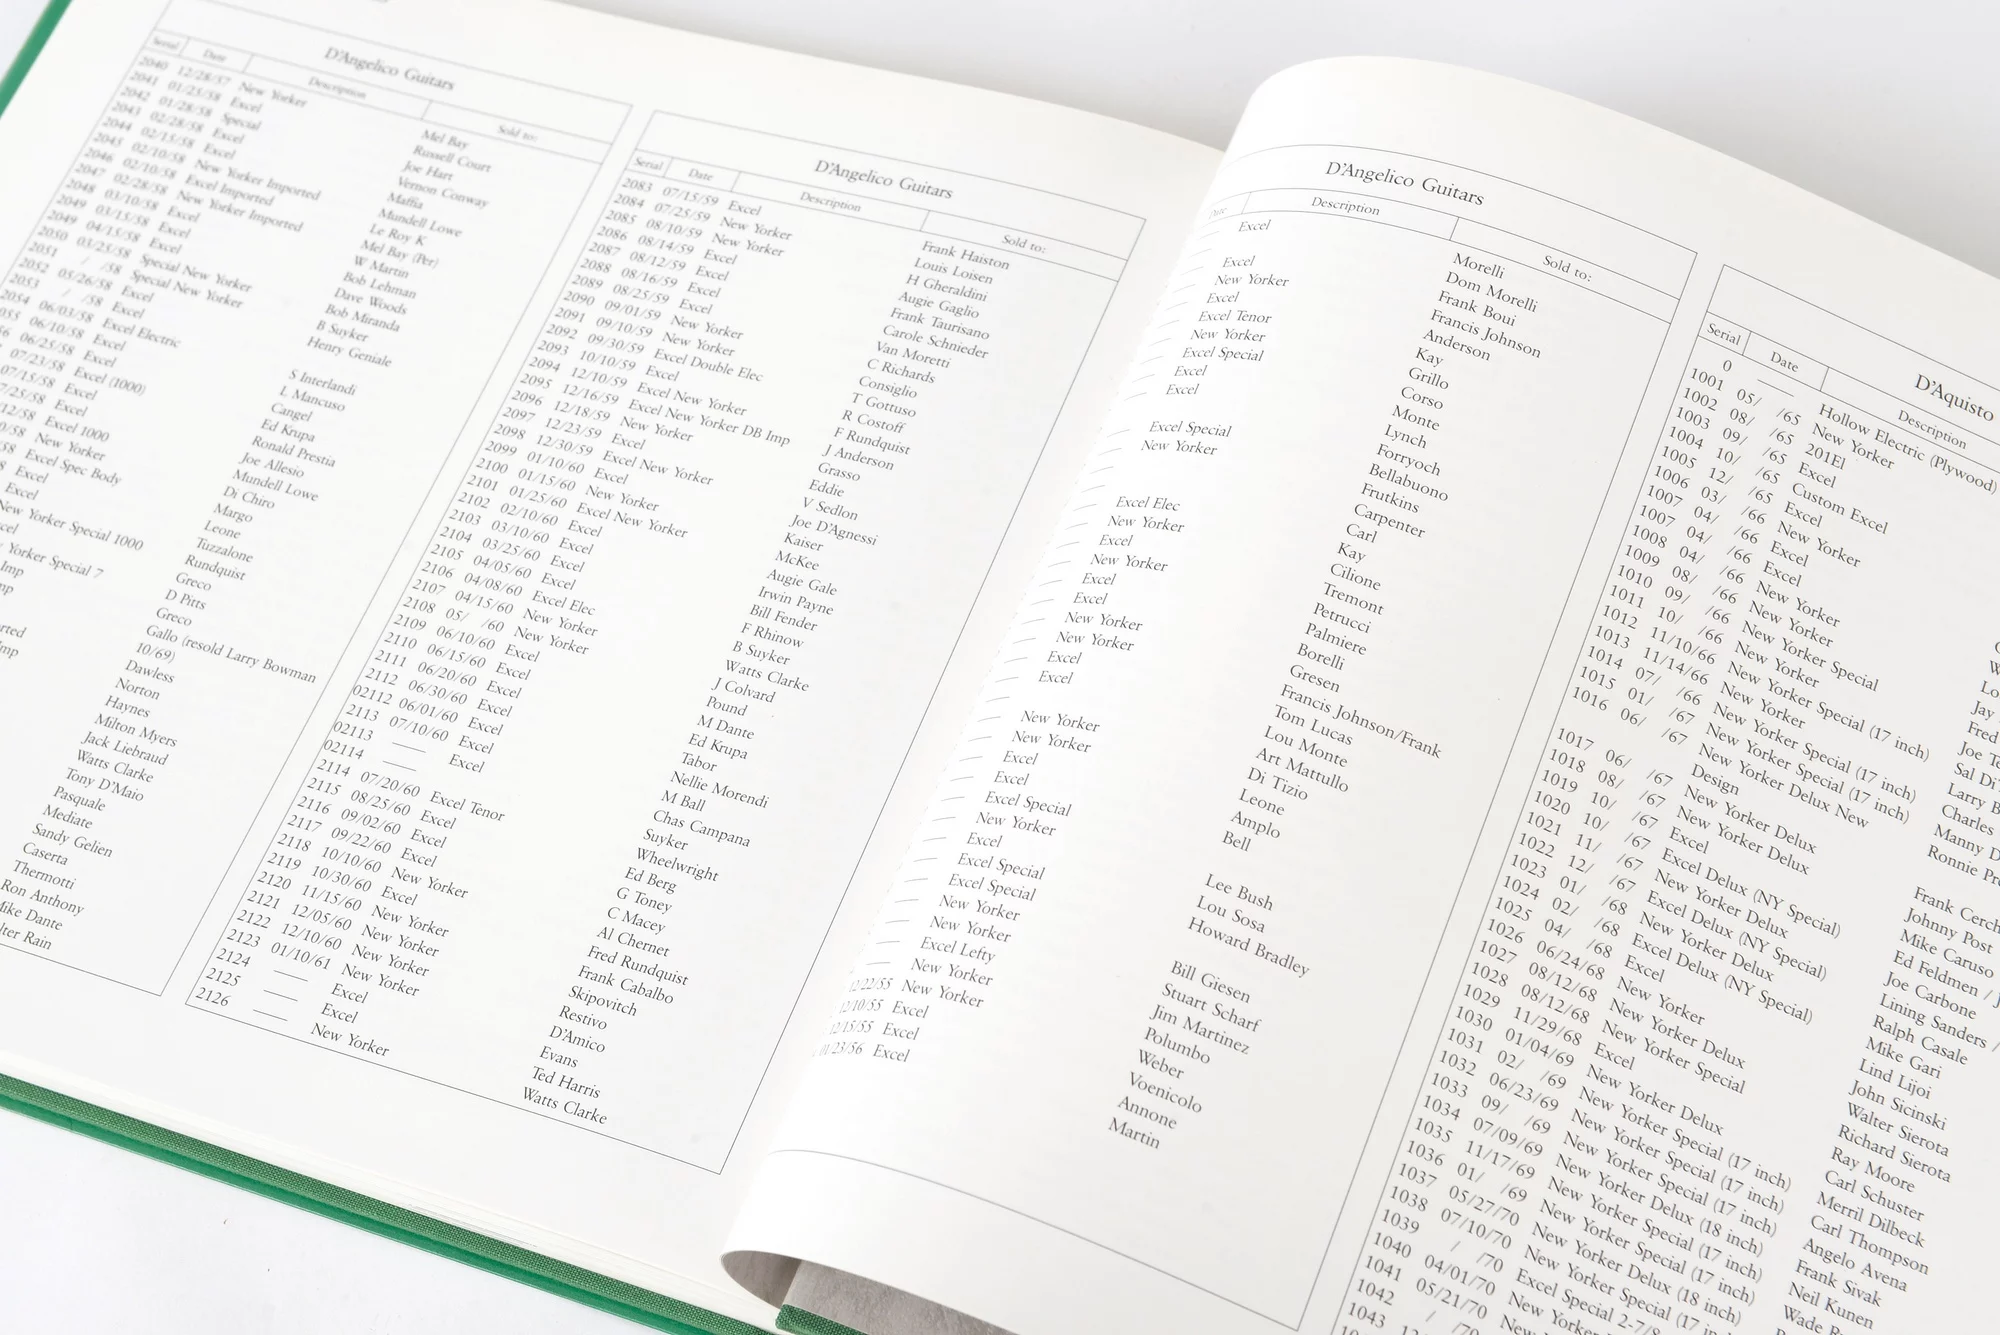 D'Angelico Guitars
Serial Date Description Sold to:
2040 12/28/57 New Yorker
2041 01/25/58 Excel
2042 01/28/58 Special
2043 02/28/58 Excel
2044 02/15/58 Excel
2045 02/10/58 New Yorker Imported
2046 02/10/58 Excel Imported
2047 02/28/58 New Yorker Imported
2048 03/10/58 Excel
2049 03/15/58 Excel
2049 04/15/58 Excel
2050 03/25/58 Special New Yorker
2051 / /58 Special New Yorker
2052 05/26/58 Excel
2053 / /58 Excel
2054 06/03/58 Excel Electric
055 06/10/58 Excel
06/25/58 Excel
07/23/58 Excel (1000)
07/15/58 Excel
7/25/58 Excel
/12/58 Excel 1000
0/58 New Yorker
/58 Excel Spec Body
Excel
Excel
New Yorker Special 1000
Yorker Special 7
Imp
Mel Bay
Russell Court
Joe Hart
Vernon Conway
Maffia
Mundell Lowe
Le Roy K
Mel Bay (Per)
W Martin
Bob Lehman
Dave Woods
Bob Miranda
B Suyker
Henry Geniale
S Interlandi
L Mancuso
Cangel
Ed Krupa
Ronald Prestia
Joe Allesio
Mundell Lowe
Di Chiro
Margo
Leone
Tuzzalone
Rundquist
Greco
D Pitts
Greco
Gallo (resold Larry Bowman
10/69)
Dawless
Norton
Haynes
Milton Myers
Jack Liebraud
Watts Clarke
Tony D'Maio
Pasquale
Mediate
Sandy Gelien
Caserta
Thermotti
Ron Anthony
Mike Dante
lter Rain
D'Angelico Guitars
Serial Date Description Sold to:
2083 07/15/59 Excel
2084 07/25/59 New Yorker
2085 08/10/59 New Yorker
2086 08/14/59 Excel
2087 08/12/59 Excel
2088 08/16/59 Excel
2089 08/25/59 Excel
2090 09/01/59 New Yorker
2091 09/10/59 New Yorker
2092 09/30/59 Excel Double Elec
2093 10/10/59 Excel
2094 12/10/59 Excel New Yorker
2095 12/16/59 Excel New Yorker DB Imp
2096 12/18/59 New Yorker
2097 12/23/59 Excel
2098 12/30/59 Excel New Yorker
2099 01/10/60 Excel
2100 01/15/60 New Yorker
2101 01/25/60 Excel New Yorker
2102 02/10/60 Excel
2103 03/10/60 Excel
2104 03/25/60 Excel
2105 04/05/60 Excel
2106 04/08/60 Excel Elec
2107 04/15/60 New Yorker
2108 05/ /60 New Yorker
2109 06/10/60 Excel
2110 06/15/60 Excel
2111 06/20/60 Excel
2112 06/30/60 Excel
02112 06/01/60 Excel
2113 07/10/60 Excel
02113 —— Excel
02114 ——
2114 07/20/60 Excel Tenor
2115 08/25/60 Excel
2116 09/02/60 Excel
2117 09/22/60 Excel
2118 10/10/60 New Yorker
2119 10/30/60 Excel
2120 11/15/60 New Yorker
2121 12/05/60 New Yorker
2122 12/10/60 New Yorker
2123 01/10/61 New Yorker
2124 —— Excel
2125 —— Excel
2126 —— New Yorker
Frank Haiston
Louis Loisen
H Gheraldini
Augie Gaglio
Frank Taurisano
Carole Schnieder
Van Moretti
C Richards
Consiglio
T Gottuso
R Costoff
F Rundquist
J Anderson
Grasso
Eddie
V Sedlon
Joe D'Agnessi
Kaiser
McKee
Augie Gale
Irwin Payne
Bill Fender
F Rhinow
B Suyker
Watts Clarke
J Colvard
Pound
M Dante
Ed Krupa
Tabor
Nellie Morendi
M Ball
Chas Campana
Suyker
Wheelwright
Ed Berg
G Toney
C Macey
Al Chernet
Fred Rundquist
Frank Cabalbo
Skipovitch
Restivo
D'Amico
Evans
Ted Harris
Watts Clarke
D'Angelico Guitars
Date Description Sold to:
Excel
Excel
New Yorker
Excel
Excel Tenor
New Yorker
Excel Special
Excel
Excel
Excel Special
New Yorker
Excel Elec
New Yorker
Excel
New Yorker
Excel
Excel
New Yorker
New Yorker
Excel
Excel
New Yorker
New Yorker
Excel
Excel
Excel Special
New Yorker
Excel
Excel Special
Excel Special
New Yorker
New Yorker
Excel Lefty
New Yorker
12/22/55 New Yorker
12/10/55 Excel
12/15/55 Excel
01/23/56 Excel
Morelli
Dom Morelli
Frank Boui
Francis Johnson
Anderson
Kay
Grillo
Corso
Monte
Lynch
Forryoch
Bellabuono
Frutkins
Carpenter
Carl
Kay
Cilione
Tremont
Petrucci
Palmiere
Borelli
Gresen
Francis Johnson/Frank
Tom Lucas
Lou Monte
Art Mattullo
Di Tizio
Leone
Amplo
Bell
Lee Bush
Lou Sosa
Howard Bradley
Bill Giesen
Stuart Scharf
Jim Martinez
Polumbo
Weber
Voenicolo
Annone
Martin
D'Aquisto
Serial Date Description
0 —— Hollow Electric (Plywood)
1001 05/ /65 New Yorker
1002 08/ /65 201El
1003 09/ /65 Excel
1004 10/ /65 Custom Excel
1005 12/ /65 Excel
1006 03/ /66 New Yorker
1007 04/ /66 Excel
1007 04/ /66 Excel
1008 04/ /66 New Yorker
1009 08/ /66 New Yorker
1010 09/ /66 New Yorker
1011 10/ /66 New Yorker Special
1012 11/10/66 New Yorker
1013 11/14/66 New Yorker Special (17 inch)
1014 07/ /66 New Yorker
1015 01/ /67 New Yorker Special (17 inch)
1016 06/ /67 New Yorker Special (17 inch)
New Yorker Delux New
Design
1017 06/ /67 New Yorker Delux
1018 08/ /67 New Yorker Delux
1019 10/ /67 Excel
1020 10/ /67 Excel Delux (NY Special)
1021 11/ /67 New Yorker Delux
1022 12/ /67 Excel Delux (NY Special)
1023 01/ /68 New Yorker Delux
1024 02/ /68 Excel Delux (NY Special)
1025 04/ /68 Excel
1026 06/24/68 New Yorker
1027 08/12/68 New Yorker Delux
1028 08/12/68 New Yorker Special
1029 11/29/68 Excel
1030 01/04/69 New Yorker Delux
1031 02/ /69 New Yorker Special (17 inch)
1032 06/23/69 New Yorker Special (17 inch)
1033 09/ /69 New Yorker Special (17 inch)
1034 07/09/69 New Yorker Delux (18 inch)
1035 11/17/69 New Yorker Special (17 inch)
1036 01/ /69 New Yorker Special (17 inch)
1037 05/27/70 New Yorker Delux (18 inch)
1038 07/10/70 New Yorker Special (17 inch)
1039 / /70 Excel Special 2-7/8
1040 04/01/70 New Yorker
1041 05/21/70
1042 / /70
1043 12
Lo
Jay
Fred
Joe Te
Sal Di
Larry B
Charles
Manny D
Ronnie Pr
Frank Cerch
Johnny Post
Mike Caruso
Ed Feldmen / J
Joe Carbone
Lining Sanders /
Ralph Casale
Mike Gari
Lind Lijoi
John Sicinski
Walter Sierota
Richard Sierota
Ray Moore
Carl Schuster
Merril Dilbeck
Carl Thompson
Angelo Avena
Frank Sivak
Neil Kunen
Wade R